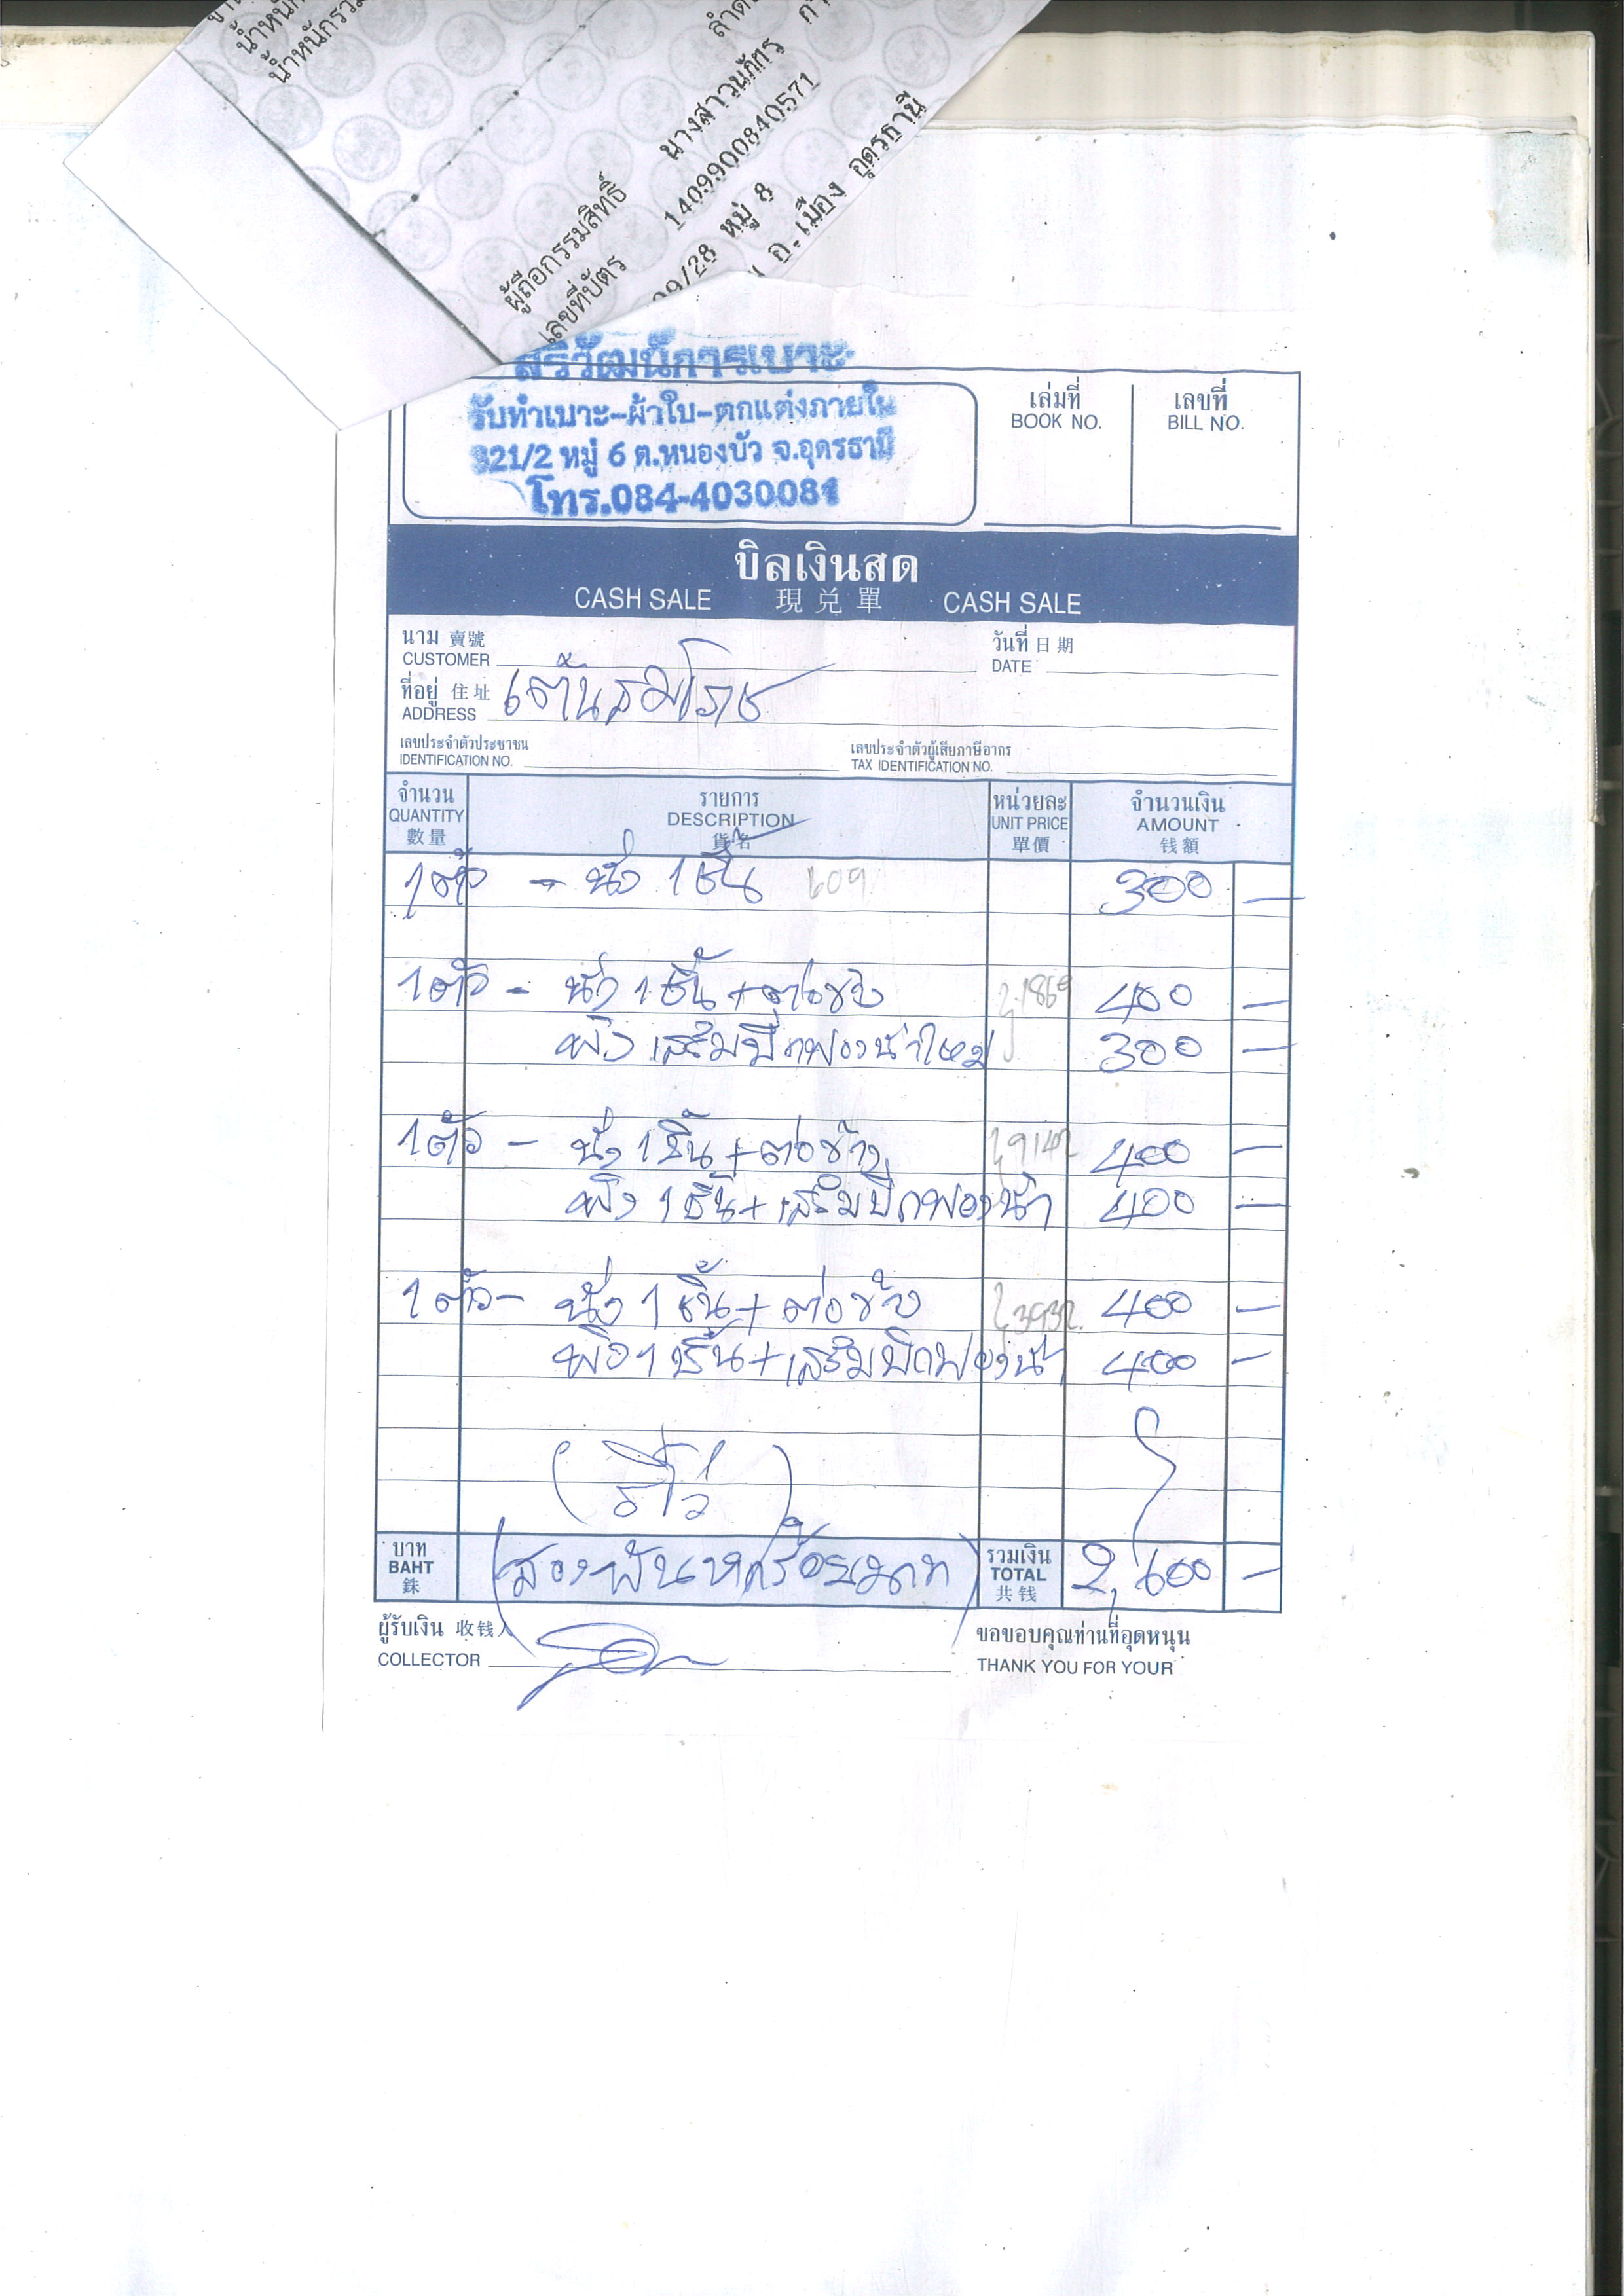 น้ำหนักรวม
ผู้ถือกรรมสิทธิ์ นางสาวนภัทร
เลขที่บัตร 1409900840571
09/28 หมู่ 8
อ.เมือง อุดรธานี
สุริวัฒน์การเบาะ
รับทำเบาะ-ผ้าใบ-ตกแต่งภายใน
321/2 หมู่ 6 ต.หนองบัว จ.อุดรธานี
โทร.084-4030081
เล่มที่ เลขที่
BOOK NO. BILL NO.
บิลเงินสด
CASH SALE 現兑單 CASH SALE
นาม 賣號 วันที่ 日期
CUSTOMER DATE
ที่อยู่ 住址 เต้นสมโรช
ADDRESS
เลขประจำตัวประชาชน เลขประจำตัวผู้เสียภาษีอากร
IDENTIFICATION NO. TAX IDENTIFICATION NO.
จำนวน รายการ หน่วยละ จำนวนเงิน
QUANTITY DESCRIPTION UNIT PRICE AMOUNT
數量 貨名 單價 钱额
1ตัว - นั่ง 1ชิ้น 609 300 -
1ตัว - นั่ง 1ชิ้น + ต่อข้าง 1869 400 -
พิง เสริมปีกฟองน้ำใหม่ 300 -
1ตัว - นั่ง 1ชิ้น + ต่อข้าง 9142 400 -
พิง 1ชิ้น + เสริมปีกฟองน้ำ 400 -
1ตัว - นั่ง 1ชิ้น + ต่อข้าง 3932 400 -
พิง 1ชิ้น + เสริมปีกฟองน้ำ 400 -
บาท รวมเงิน
BAHT (สองพันหกร้อยบาท) TOTAL 2,600 -
銖 共钱
ผู้รับเงิน 收钱人 ขอขอบคุณท่านที่อุดหนุน
COLLECTOR THANK YOU FOR YOUR